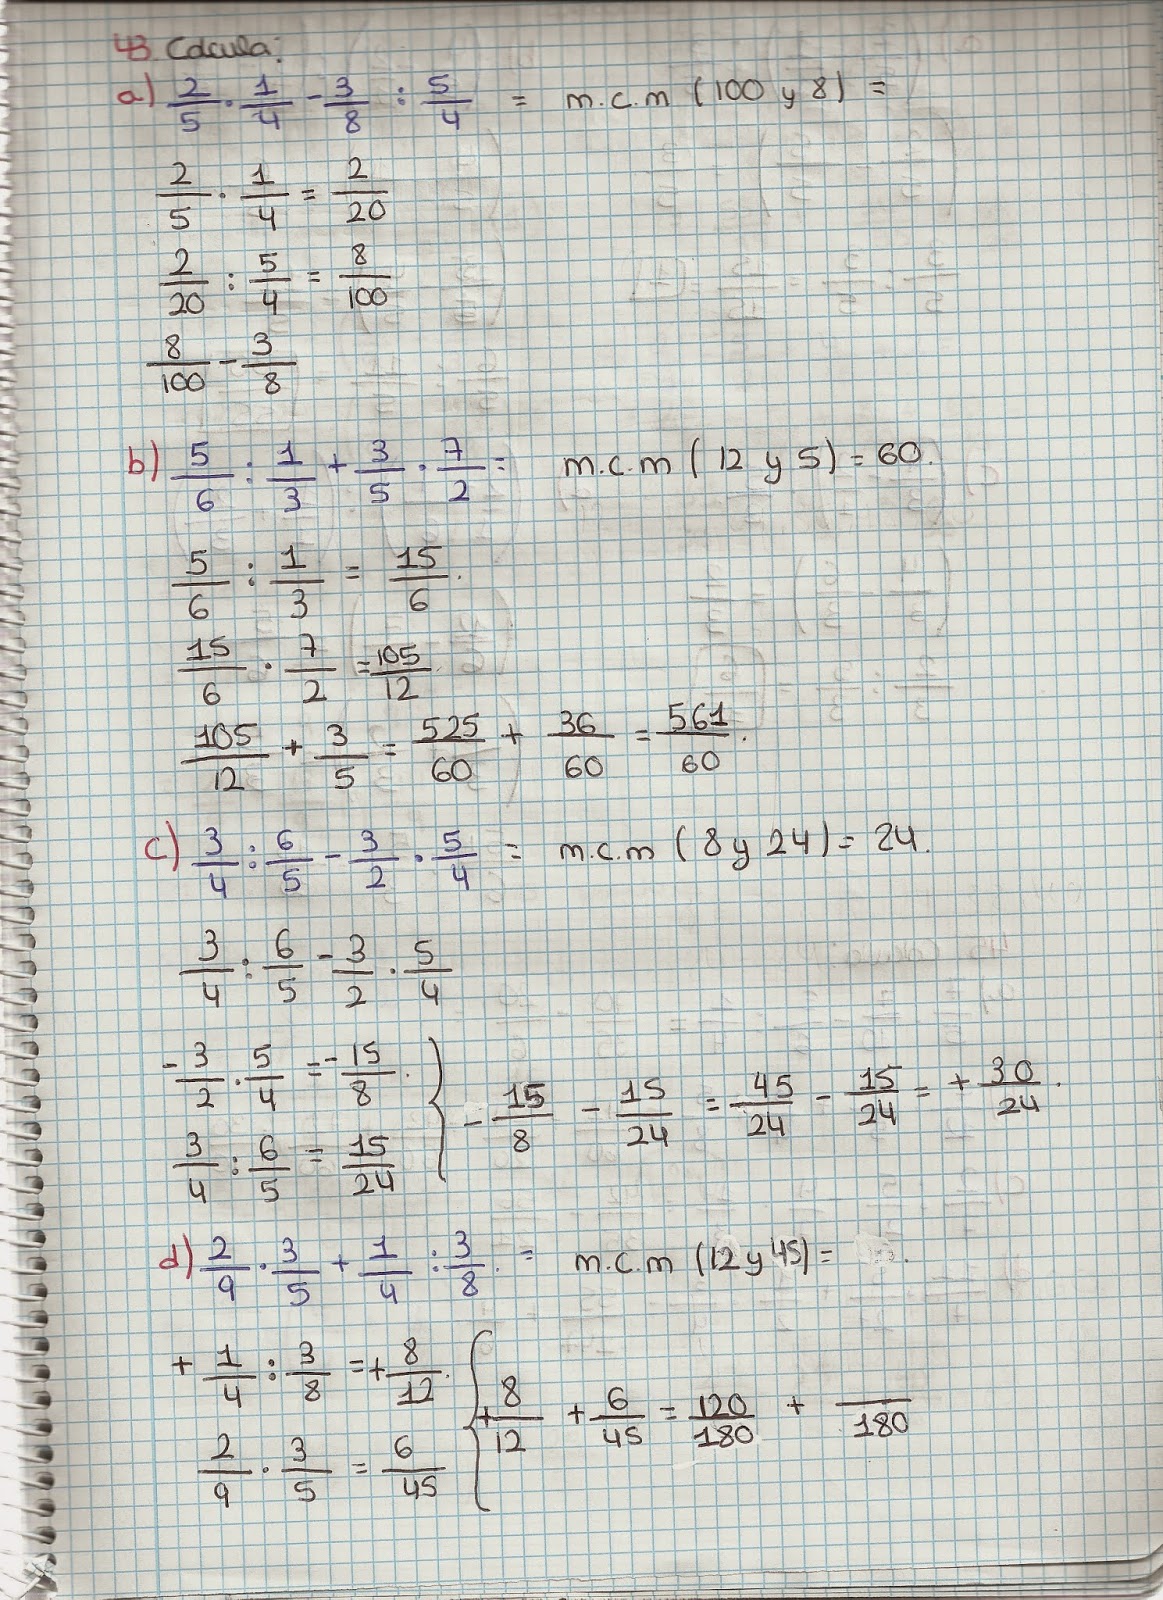 43. Calcula:
a) 2/5 · 1/4 - 3/8 : 5/4 = m.c.m (100 y 8) =
2/5 · 1/4 = 2/20
2/20 : 5/4 = 8/100
8/100 - 3/8
b) 5/6 : 1/3 + 3/5 · 7/2 = m.c.m ( 12 y 5) = 60.
5/6 : 1/3 = 15/6.
15/6 · 7/2 = 105/12
105/12 + 3/5 = 525/60 + 36/60 = 561/60.
c) 3/4 : 6/5 - 3/2 · 5/4 = m.c.m ( 8 y 24) = 24.
3/4 : 6/5 - 3/2 · 5/4
-3/2 · 5/4 = -15/8.
3/4 : 6/5 = 15/24
- 15/8 - 15/24 = 45/24 - 15/24 = + 30/24.
d) 2/9 · 3/5 + 1/4 : 3/8. = m.c.m (12 y 45) = .
+ 1/4 : 3/8 = + 8/12.
2/9 · 3/5 = 6/45
+ 8/12 + 6/45 = 120/180 + /180